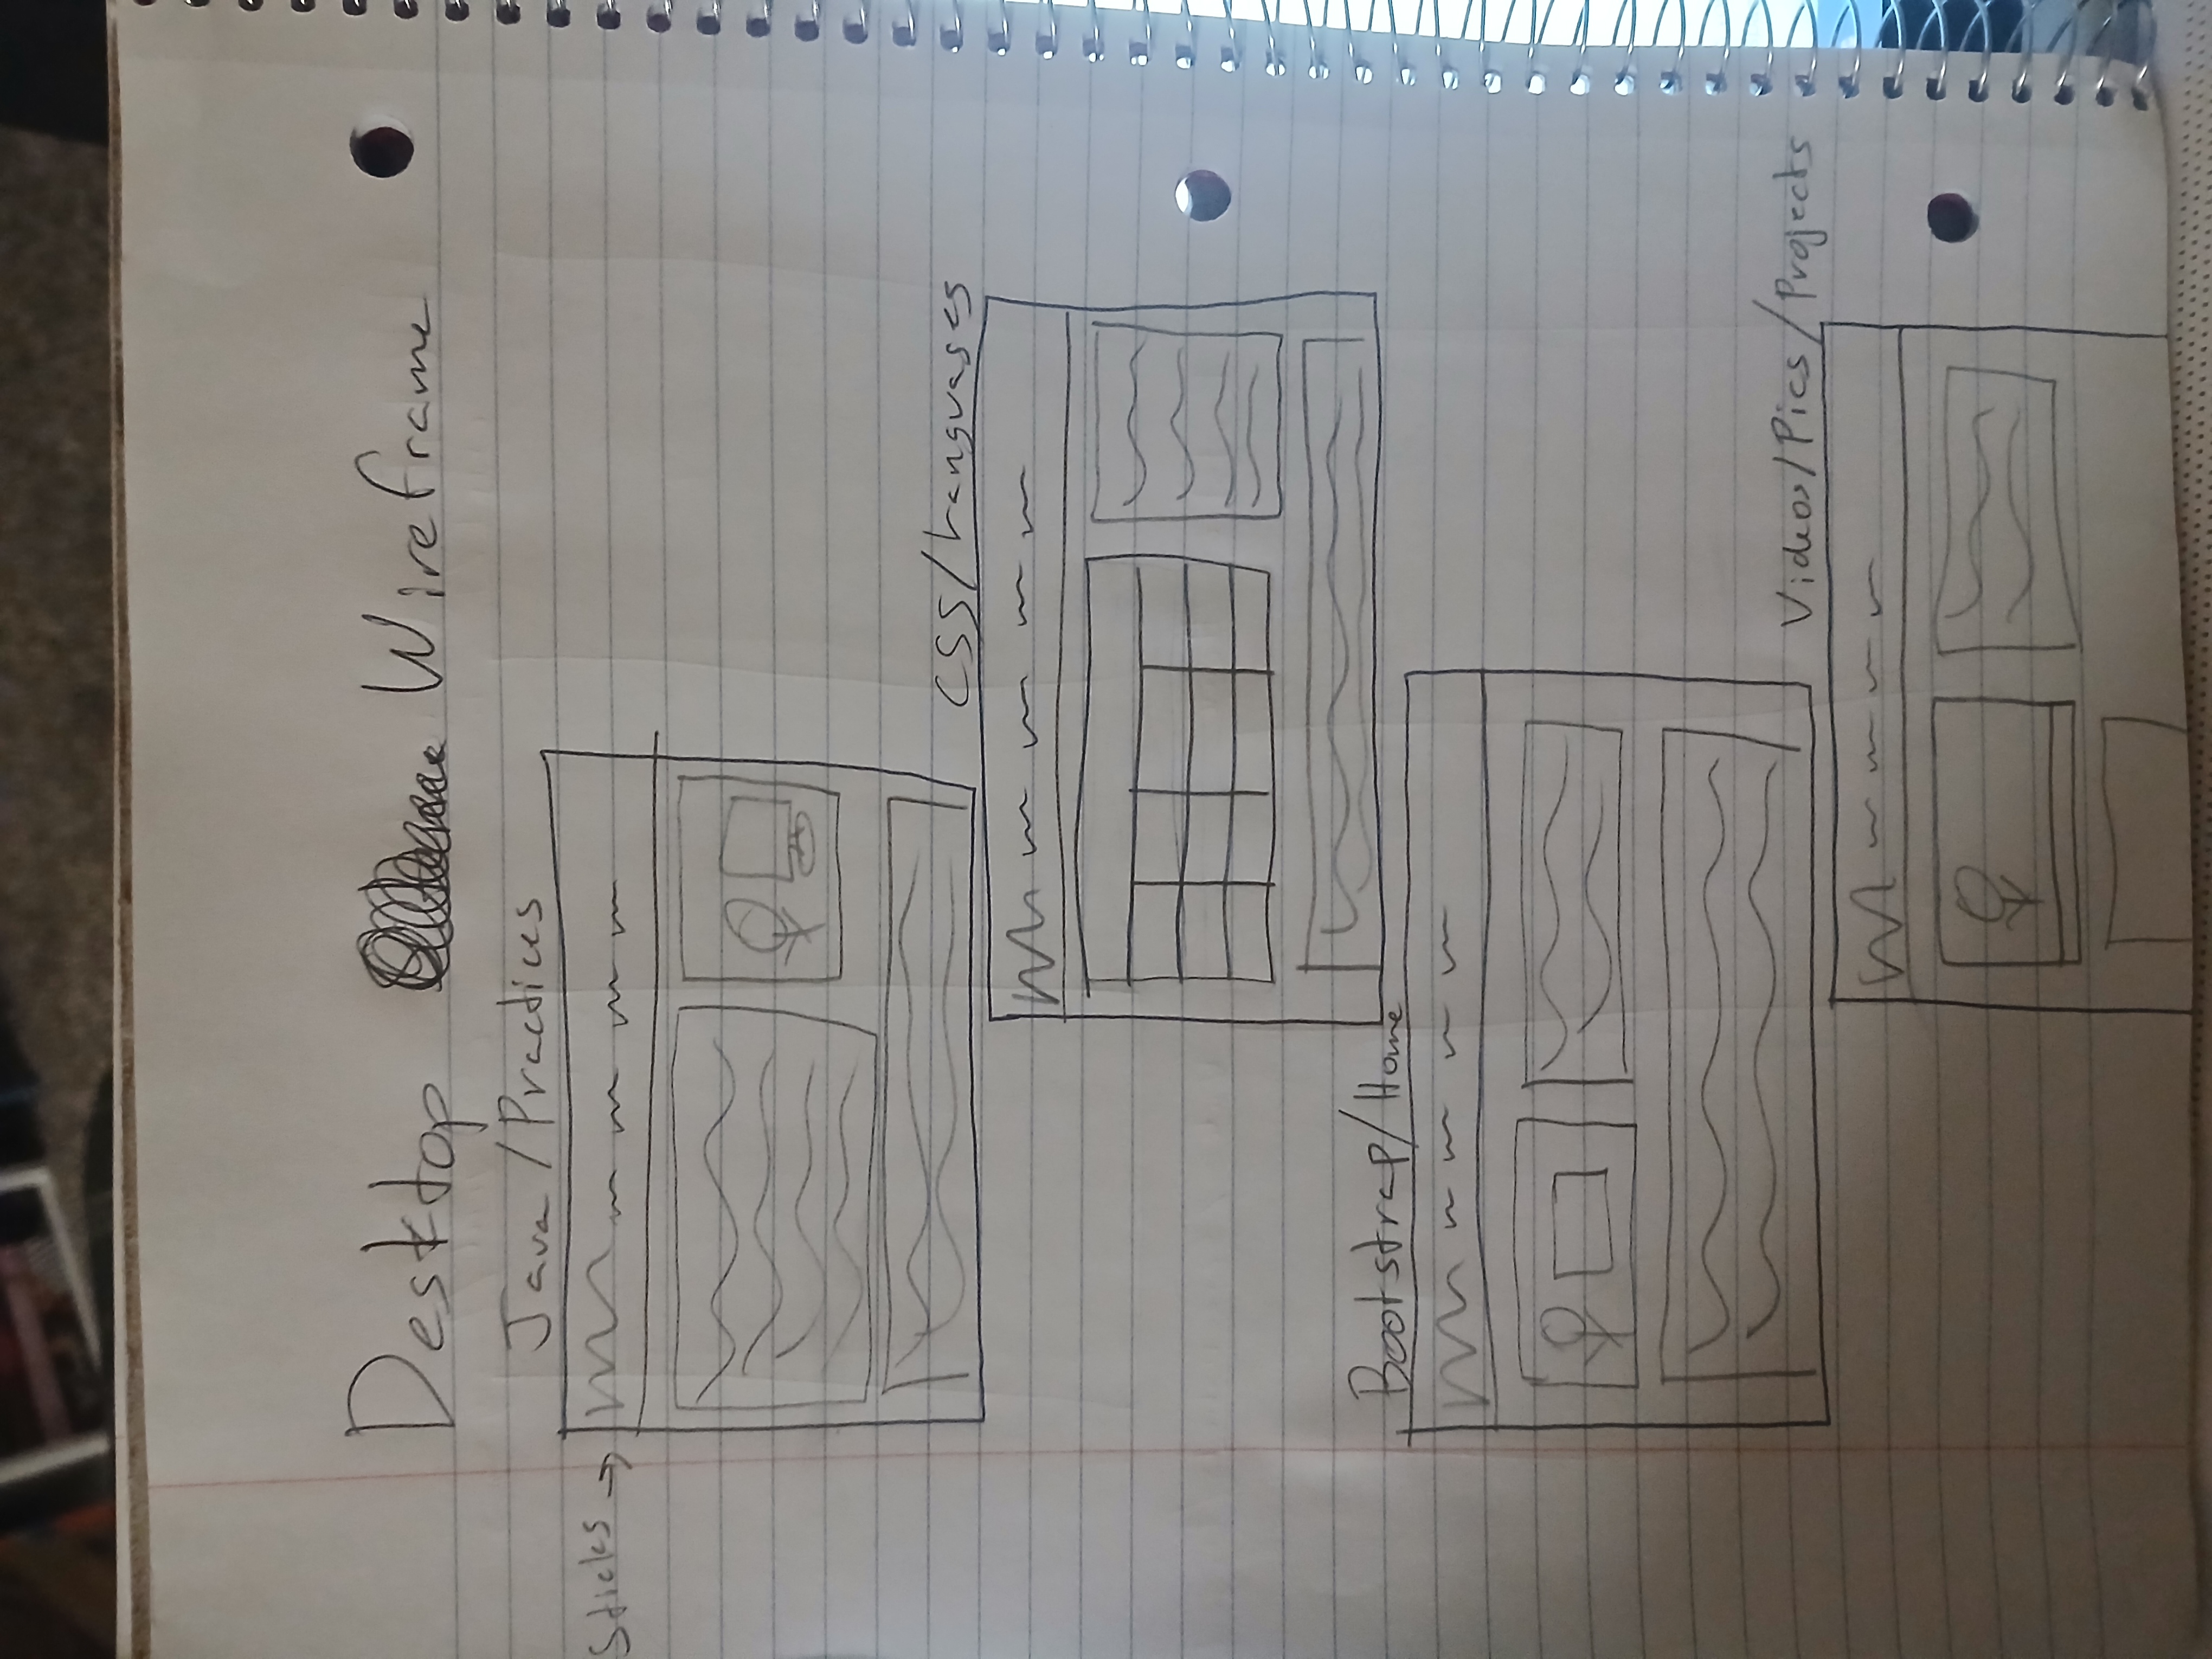 Desktop Wireframe
Java/Practices
Sticks →
CSS/Languages
Bootstrap/Home
Videos/Pics/Projects